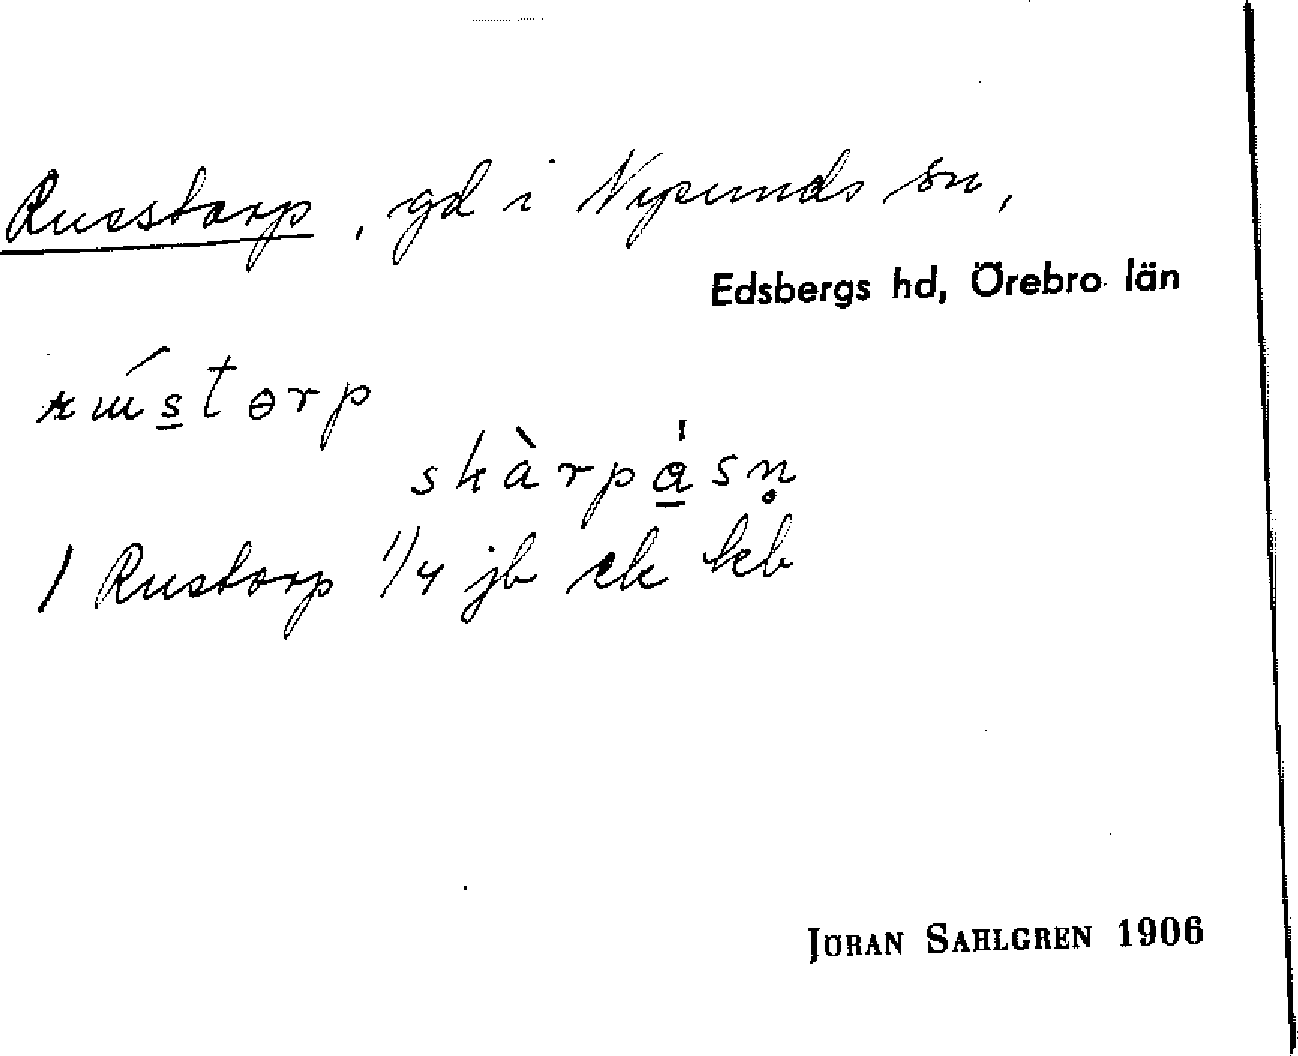 Russtorp, gd i Nysunds sn,
Edsbergs hd, Örebro län
rɯ́s̲tɵrp
skàrpá̲sn̥
1 Rustorp 1/4 jb ck kb
JÖRAN SAHLGREN 1906